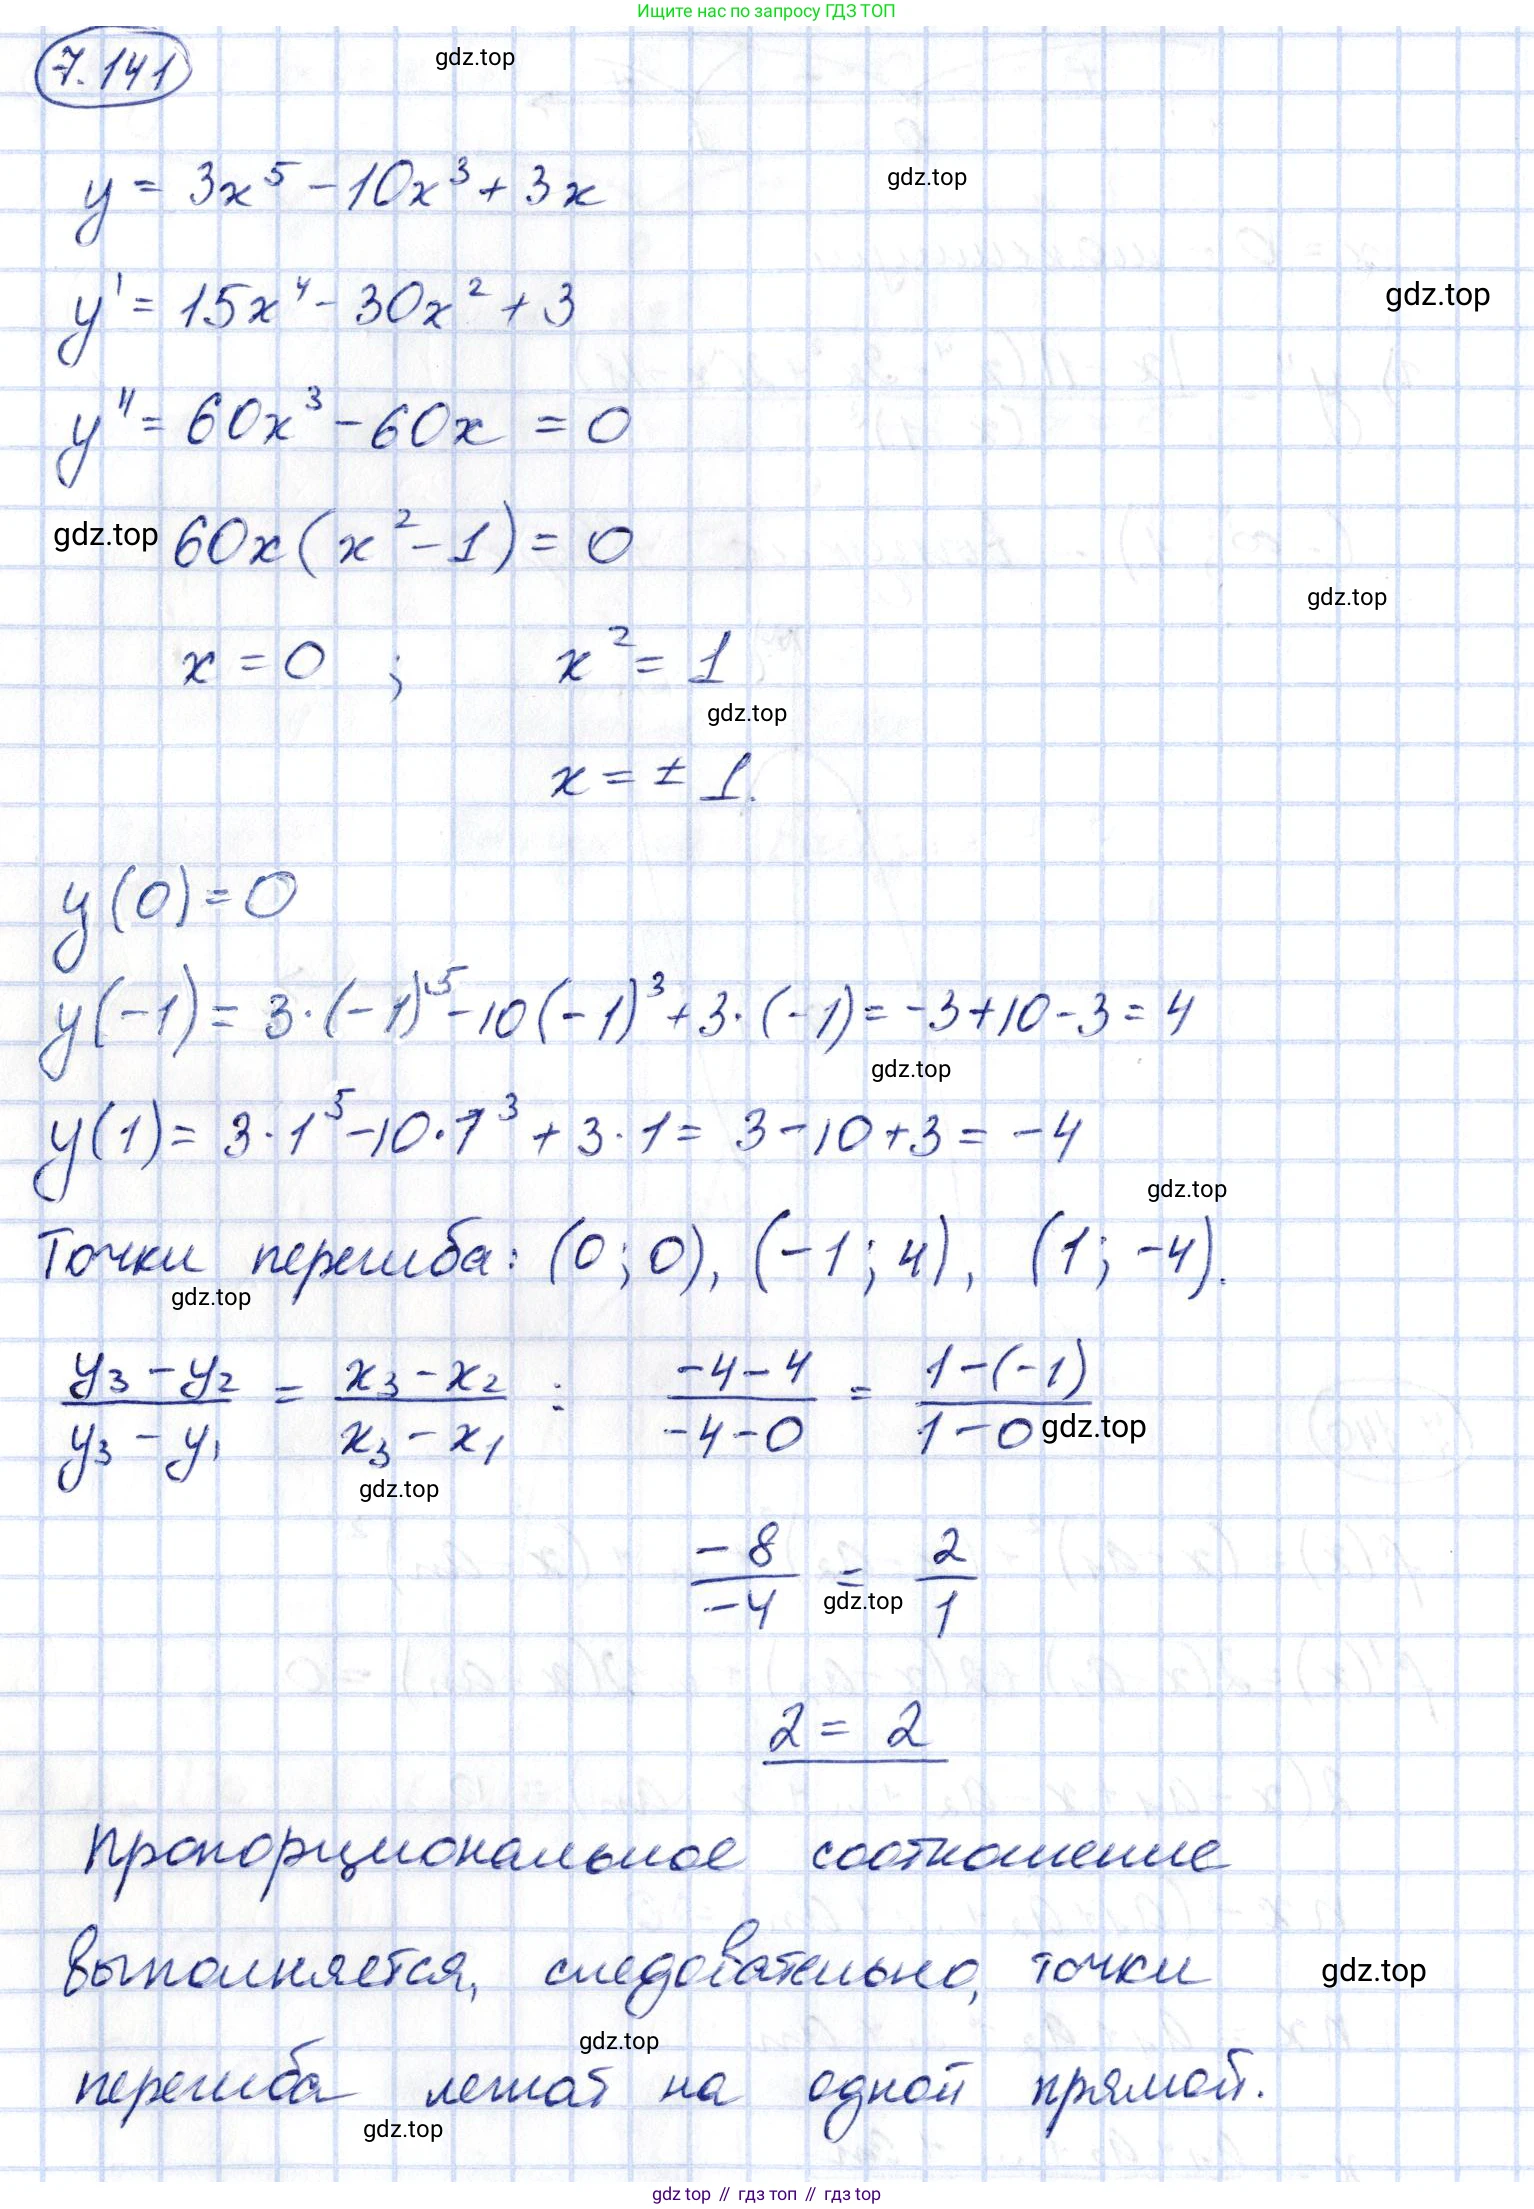 Ищите нас по запросу ГДЗ ТОП
7.141
gdz.top
y = 3x⁵ - 10x³ + 3x
gdz.top
y' = 15x⁴ - 30x² + 3
gdz.top
y'' = 60x³ - 60x = 0
gdz.top 60x(x² - 1) = 0
gdz.top
x = 0 ; x² = 1
gdz.top
x = ± 1.
y(0) = 0
y(-1) = 3·(-1)⁵ - 10(-1)³ + 3·(-1) = -3 + 10 - 3 = 4
gdz.top
y(1) = 3·1⁵ - 10·1³ + 3·1 = 3 - 10 + 3 = -4
gdz.top
Точки перегиба: (0; 0), (-1; 4), (1; -4).
gdz.top
(y₃ - y₂)/(y₃ - y₁) = (x₃ - x₂)/(x₃ - x₁) : (-4-4)/(-4-0) = (1-(-1))/(1-0)
gdz.top
gdz.top
-8/-4 = 2/1
gdz.top
2 = 2
Пропорциональное соотношение
выполняется, следовательно, точки
gdz.top
gdz.top
перегиба лежат на одной прямой.
gdz.top
gdz top // гдз топ // гдз top